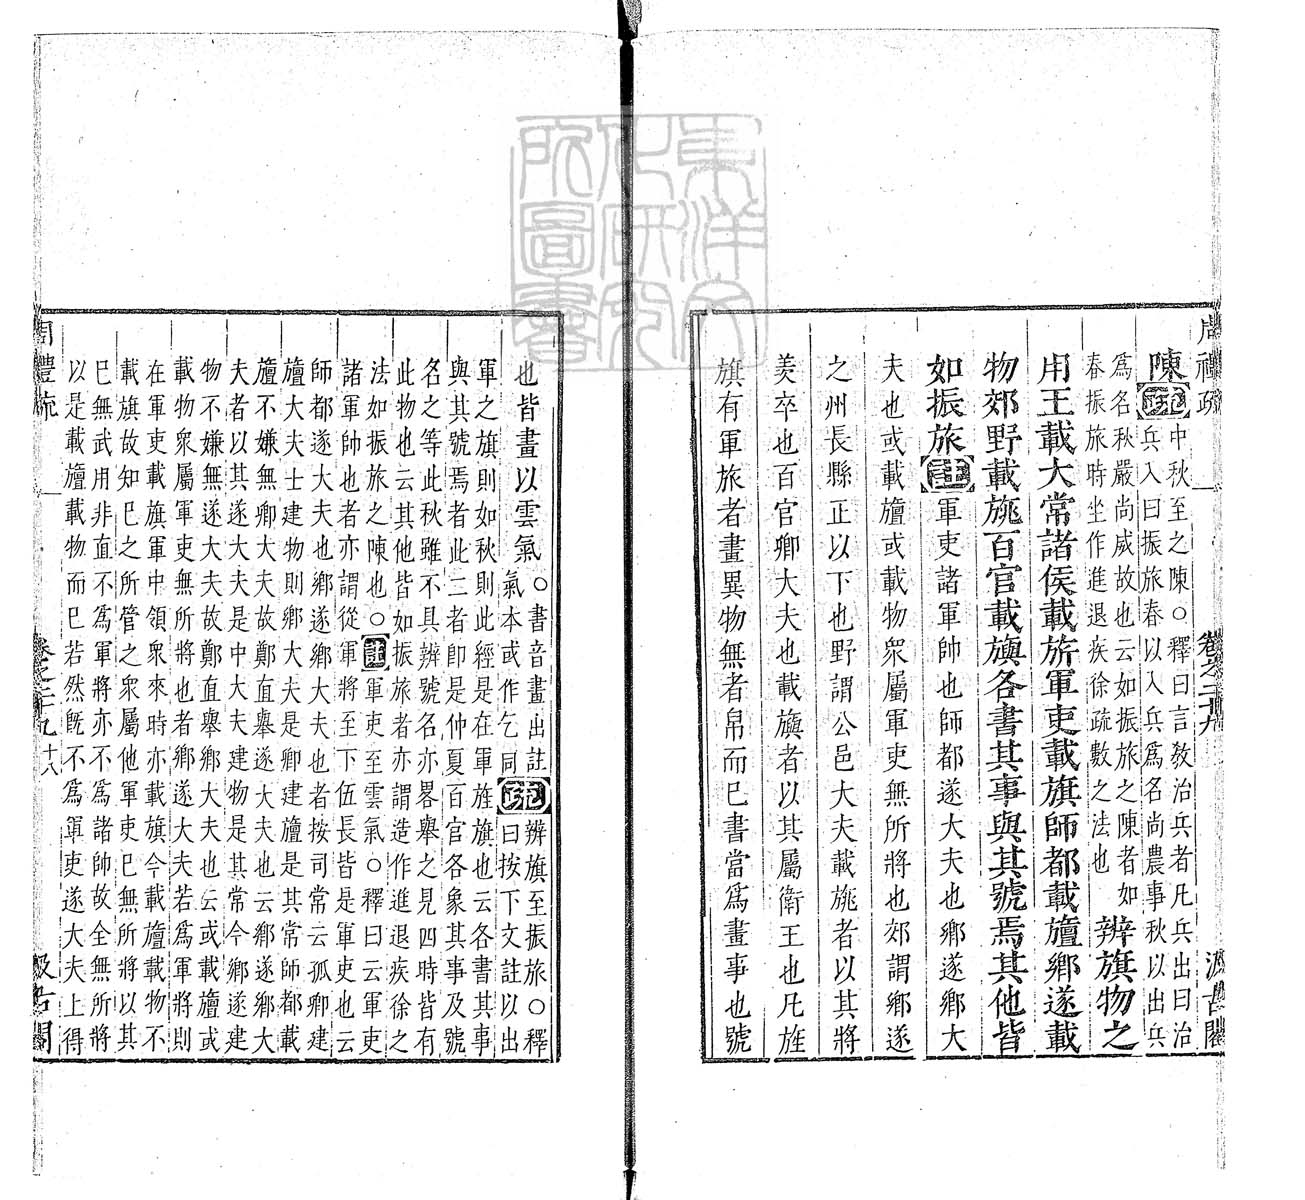 周禮疏
卷之二十九
汲古閣
陳疏中秋至之陳○釋曰言教治兵者凡兵出曰治
兵入曰振旅春以入兵爲名尚農事秋以出兵
爲名秋嚴尚威故也云如振旅之陳者如
春振旅時坐作進退疾徐疏數之法也
辨旗物之
用王載大常諸侯載旂軍吏載旗師都載旜鄉遂載
物郊野載旐百官載旟各書其事與其號焉其他皆
如振旅註軍吏諸軍帥也師都遂大夫也鄉遂鄉大
夫也或載旜或載物衆屬軍吏無所將也郊謂鄉遂
之州長縣正以下也野謂公邑大夫載旐者以其將
羨卒也百官卿大夫也載旟者以其屬衛王也凡旌
旗有軍旅者畫異物無者帛而已書當爲畫事也號
也皆畫以雲氣○書音畫出註
氣本或作乞同
疏辨旗至振旅○釋
曰按下文註以出
軍之旗則如秋則此經是在軍旌旗也云各書其事
與其號焉者此二者即是仲夏百官各象其事及號
名之等此秋雖不具辨號名亦畧舉之見四時皆有
此物也云其他皆如振旅者亦謂造作進退疾徐之
法如振旅之陳也○註軍吏至雲氣○釋曰云軍吏
諸軍帥也者亦謂從軍將至下伍長皆是軍吏也云
師都遂大夫也鄉遂鄉大夫也者按司常云孤卿建
旜大夫士建物則鄉大夫是卿建旜是其常師都載
旜不嫌無卿大夫故鄭直舉遂大夫也云鄉遂鄉大
夫者以其遂大夫是中大夫建物是其常今鄉遂建
物不嫌無遂大夫故鄭直舉鄉大夫也云或載旜或
載物衆屬軍吏無所將也者鄉遂大夫若爲軍將則
在軍吏載旗軍中領衆來時亦載旗今載旜載物不
載旗故知已之所管之衆屬他軍吏已無所將以其
已無武用非直不爲軍將亦不爲諸帥故全無所將
以是載旜載物而已若然既不爲軍吏遂大夫上得
周禮疏
卷之二十九
十八
汲古閣
東洋文化研究所圖書